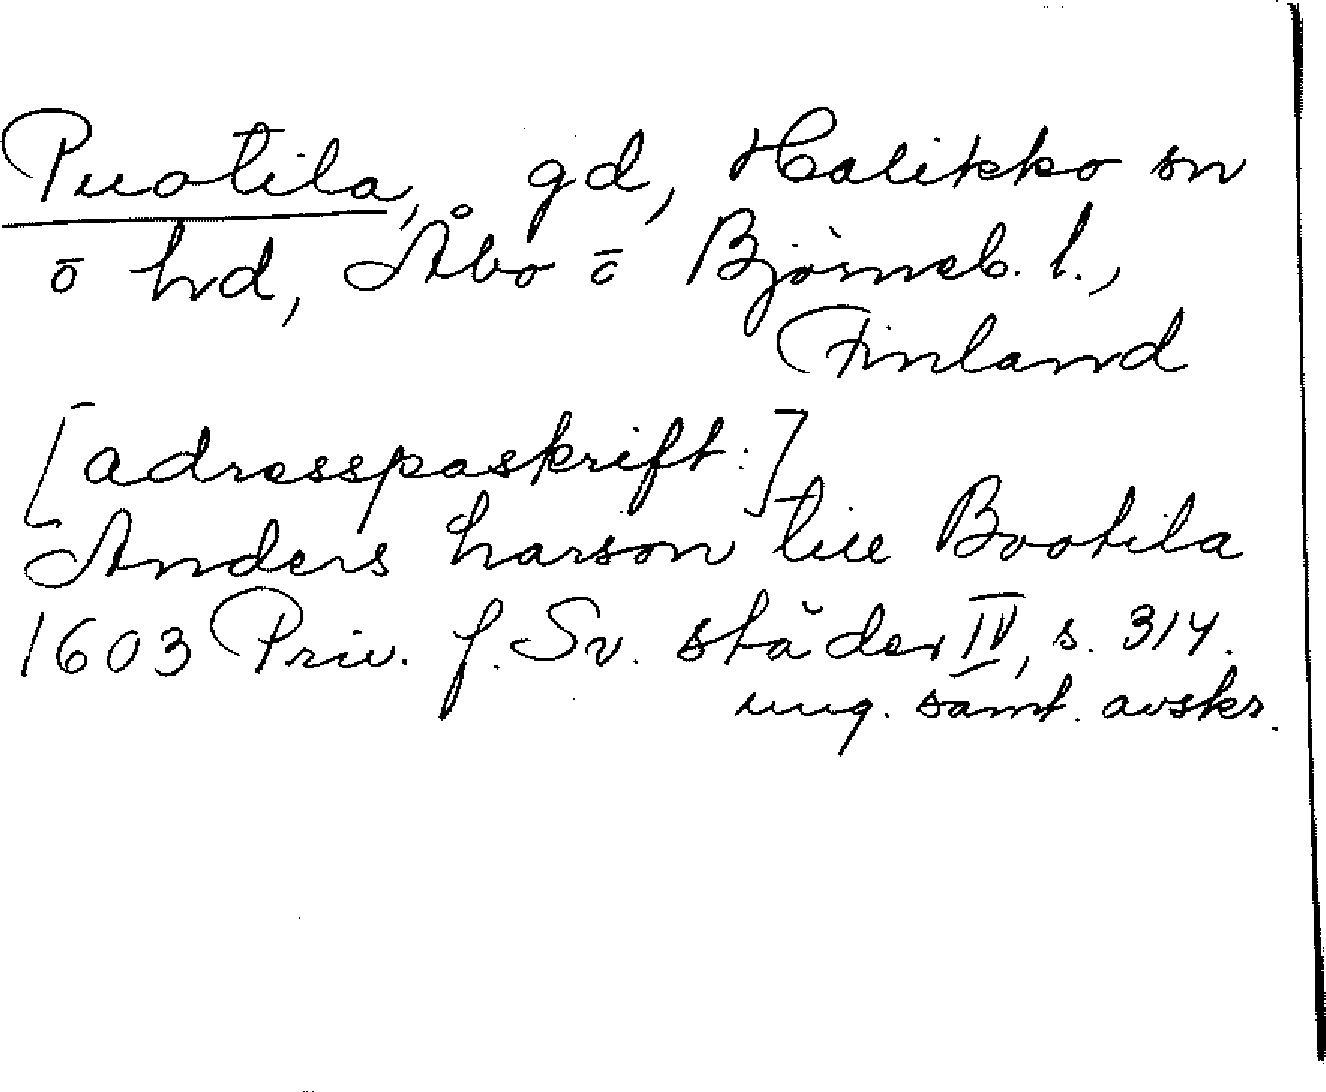 Puotila, gd, Halikko sn
o hd, Åbo o Björneb. l.,
Finland
[adresspaskrift:]
Anders harson till Bootila
1603 Priv. f. Sv. städer IV, s. 314.
ung. samt. avskr.